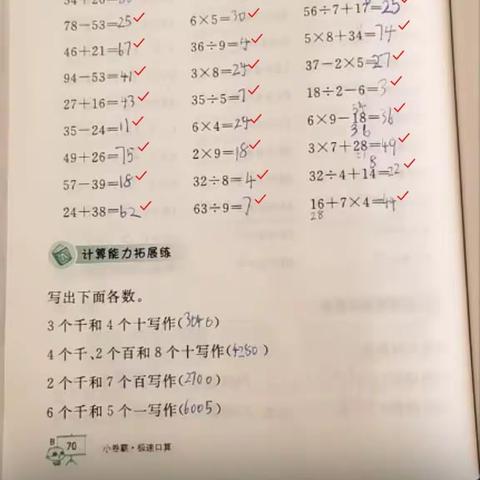 78－53=25 6×5=30 56÷7+17=25
46+21=67 36÷9=4 5×8+34=74
94－53=41 3×8=24 37－2×5=27
27+16=43 35÷5=7 18÷2－6=3
35－24=11 6×4=24 6×9－18=36
49+26=75 2×9=18 3×7+28=49
57－39=18 32÷8=4 32÷4+14=22
24+38=62 63÷9=7 16+7×4=44
计算能力拓展练
写出下面各数。
3个千和4个十写作(3040)
4个千、2个百和8个十写作(4280)
2个千和7个百写作(2700)
6个千和5个一写作(6005)
70 小卷霸·极速口算